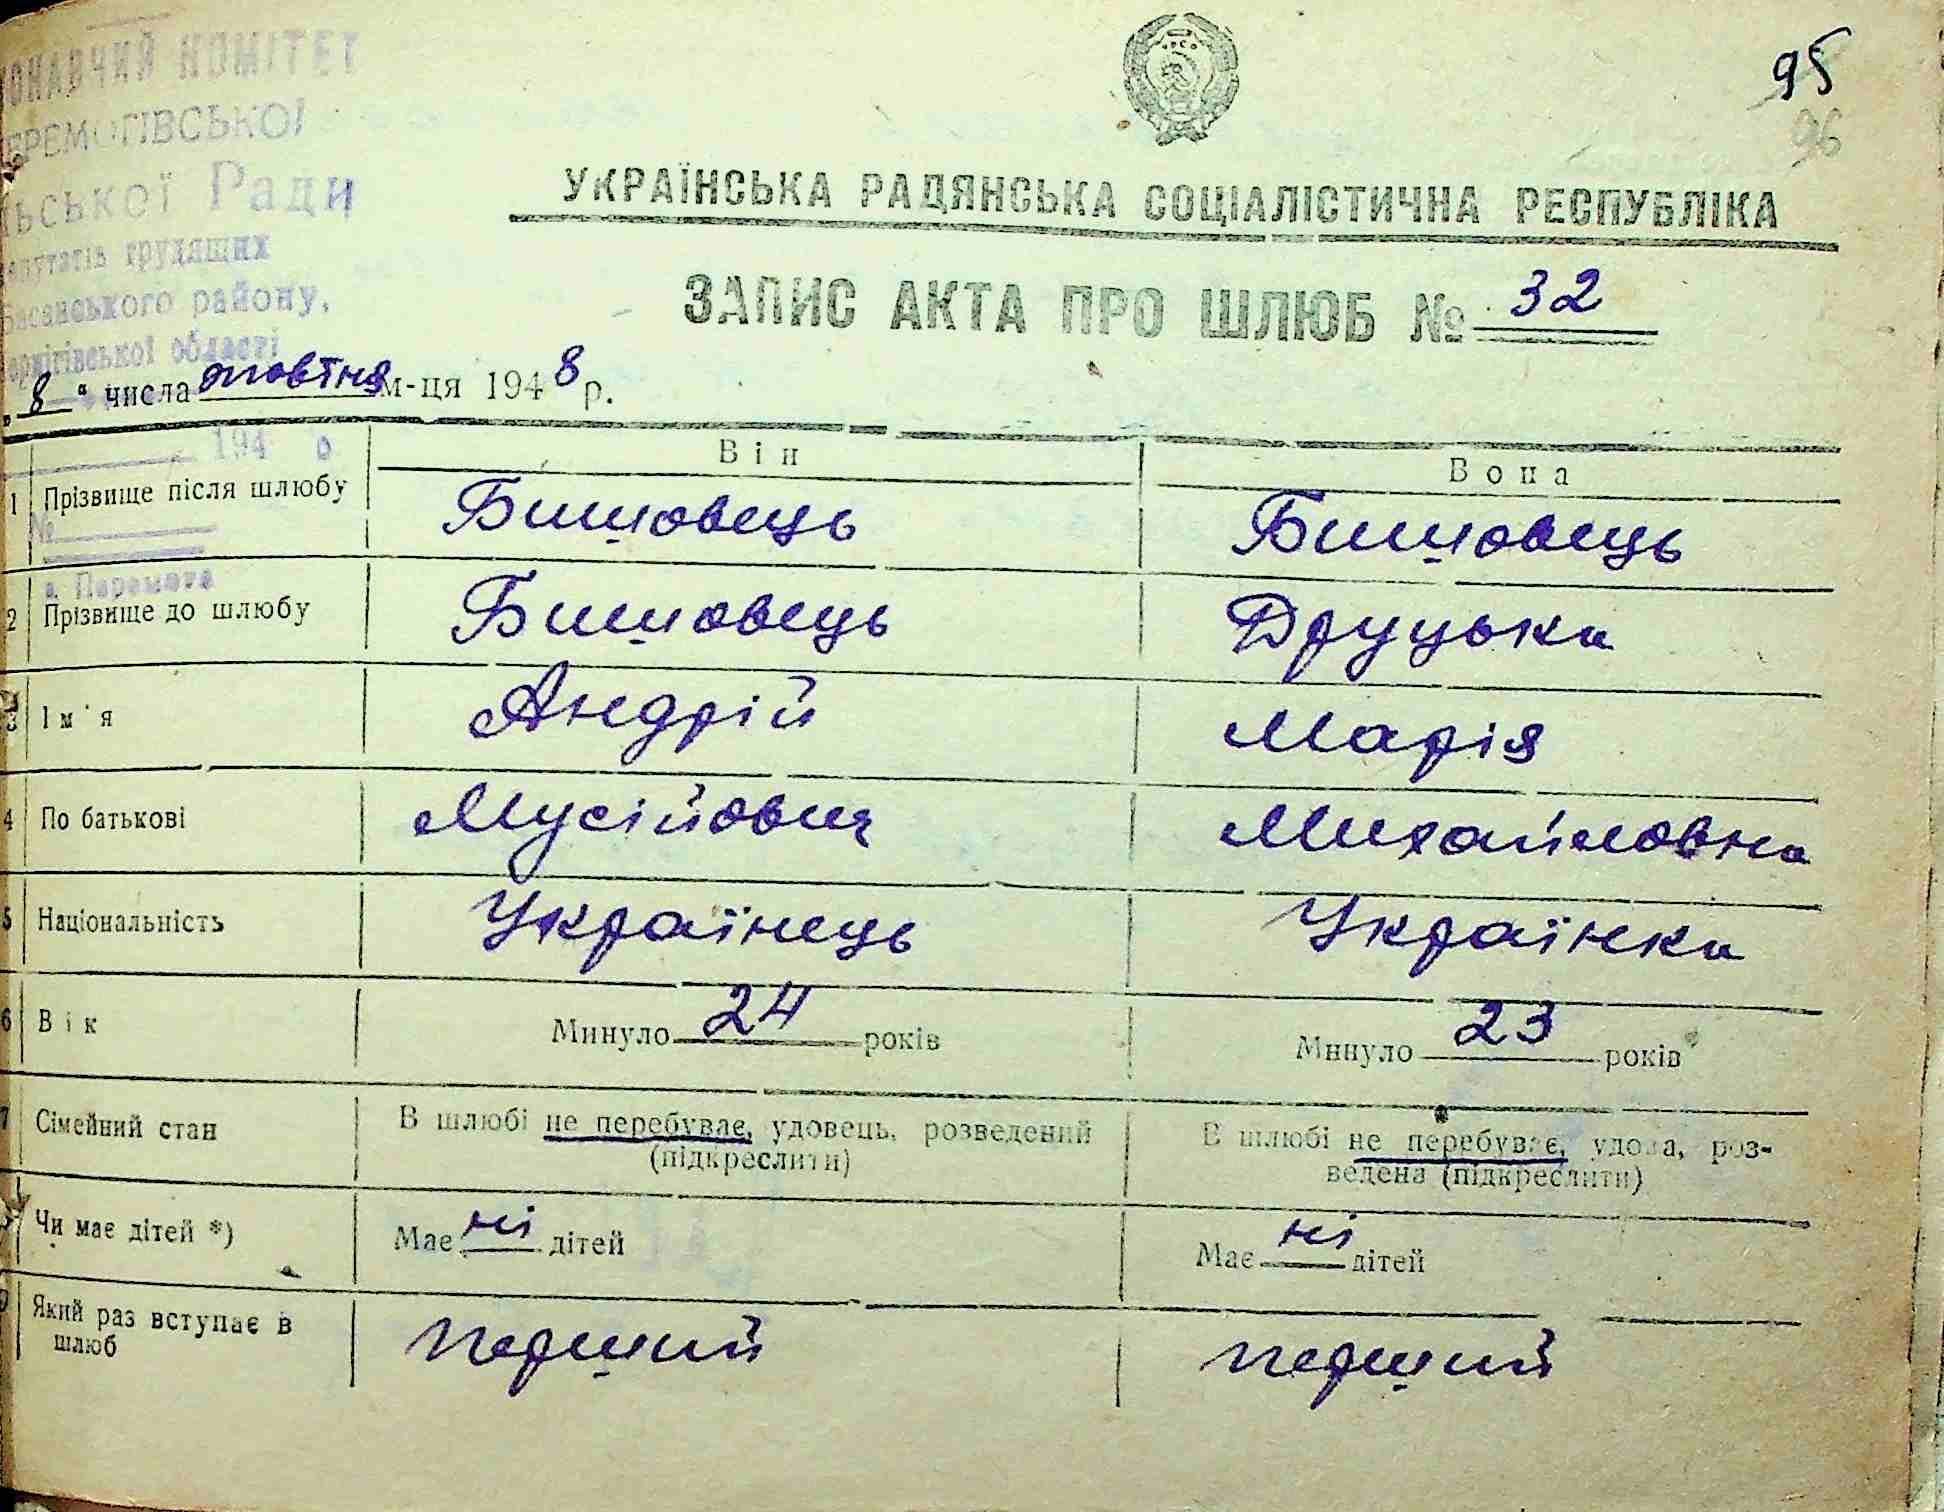 КОНАВЧИЙ КОМІТЕТ
ЕРЕМОГІВСЬКОЇ
ЛЬСЬКОЇ Ради
депутатів трудящих
Басанського району,
Чернігівської області
95
96
УКРАЇНСЬКА РАДЯНСЬКА СОЦІАЛІСТИЧНА РЕСПУБЛІКА
ЗАПИС АКТА ПРО ШЛЮБ № 32
„8“ числа жовтня м-ця 1948 р.
194 р
№
с. Перемога
Він Вона
1 Прізвище після шлюбу Бишовець Бишовець
2 Прізвище до шлюбу Бишовець Друцька
3 Ім'я Андрій Марія
4 По батькові Мусійович Михайловна
5 Національність Українець Українка
6 Вік Минуло 24 років Минуло 23 років
7 Сімейний стан В шлюбі не перебуває, удовець, розведений (підкреслити) В шлюбі не перебуває, удова, роз-
ведена (підкреслити)
Чи має дітей *) Має ні дітей Має ні дітей
9 Який раз вступає в шлюб перший перший